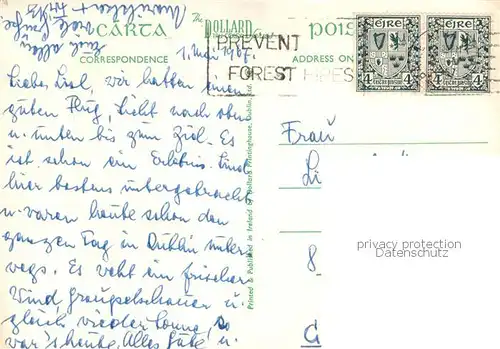 CARTA
CORRESPONDENCE
The DOLLARD
POIS
ADDRESS ON
PREVENT
FOREST FIRES
ÉIRE ÉIRE
4 4 4
1. Mai
Liebes Lisl, wir hatten einen
guten Flug, Sicht nach oben
u. unten bis zum Ziel. Es
ist schon ein Erlebnis. Sind
hier bestens untergebracht
u. waren heute schon den
ganzen Tag in Dublin unter-
wegs. Es weht ein frischer
Wind, Graupelschauer u.
gleich wieder Sonne, so
war's heute. Alles Gute u.
Euch allen
viele Grüße
Printed & Published in Ireland by Dollard Printinghouse, Dublin, Ltd.
Frau
Li
8
G
privacy protection
Datenschutz